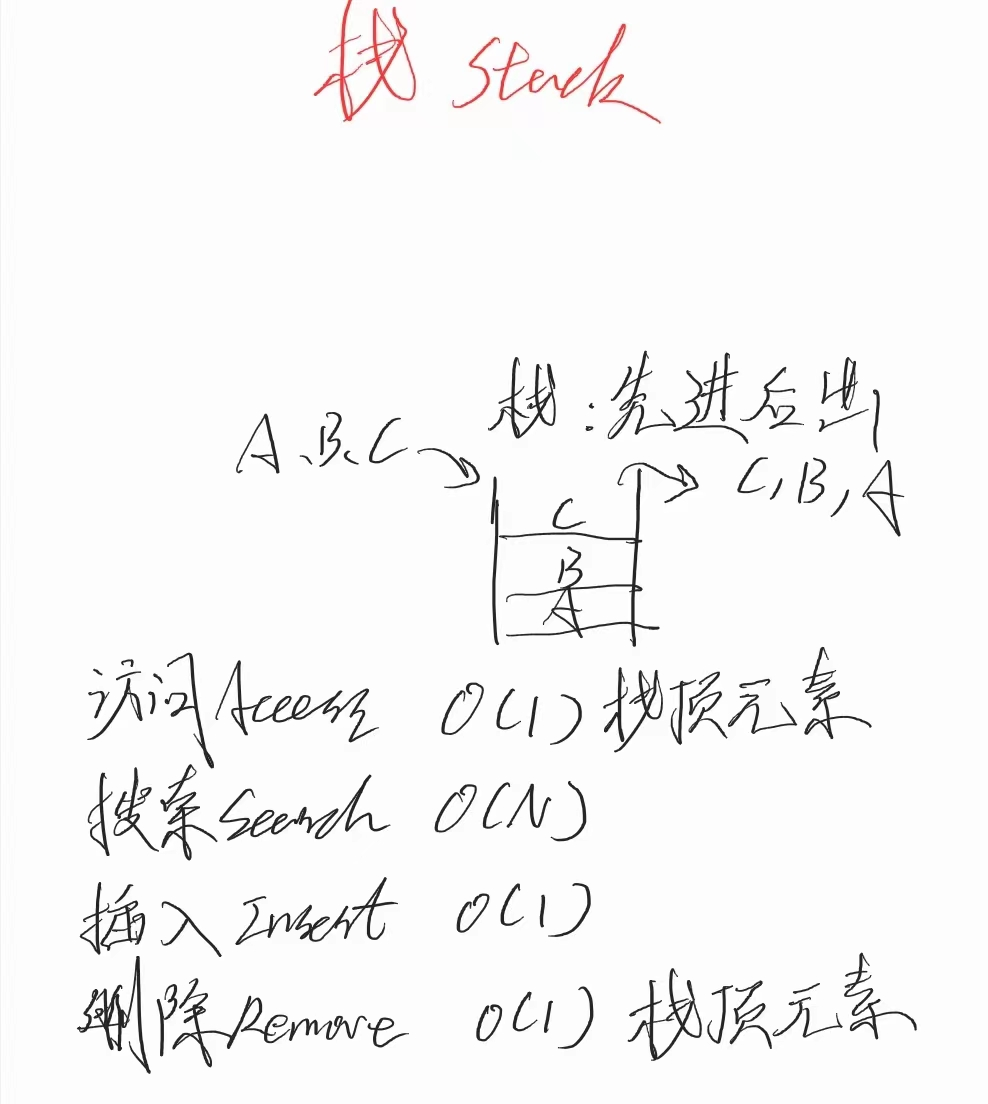 栈 Stack
栈:先进后出
A、B、C
C,B,A
C
B
A
访问Access O(1) 栈顶元素
搜索Search O(N)
插入Insert O(1)
删除Remove O(1) 栈顶元素